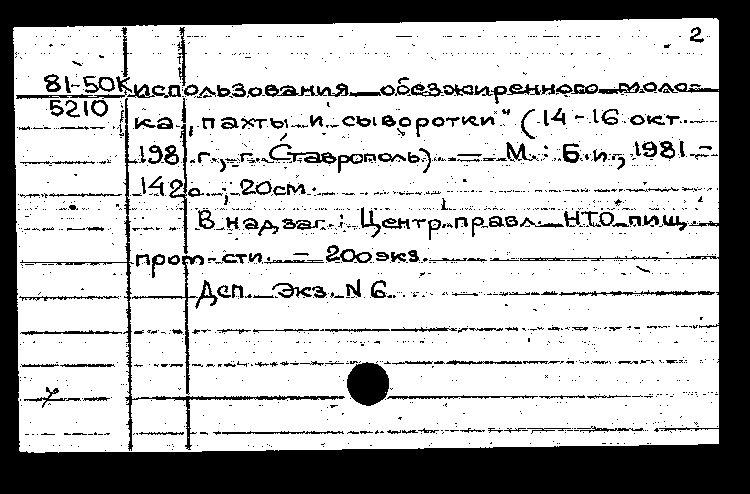 2
81-50К использования обезжиренного моло-
5210
ка, пахты и сыворотки" (14-16 окт.
1981 г., г. Ставрополь) — М.: Б.и., 1981 -
142с. ; 20см.
В надзаг.: Центр. правл. НТО пищ.
пром-сти. - 200 экз.
Дсп. Экз. N 6.